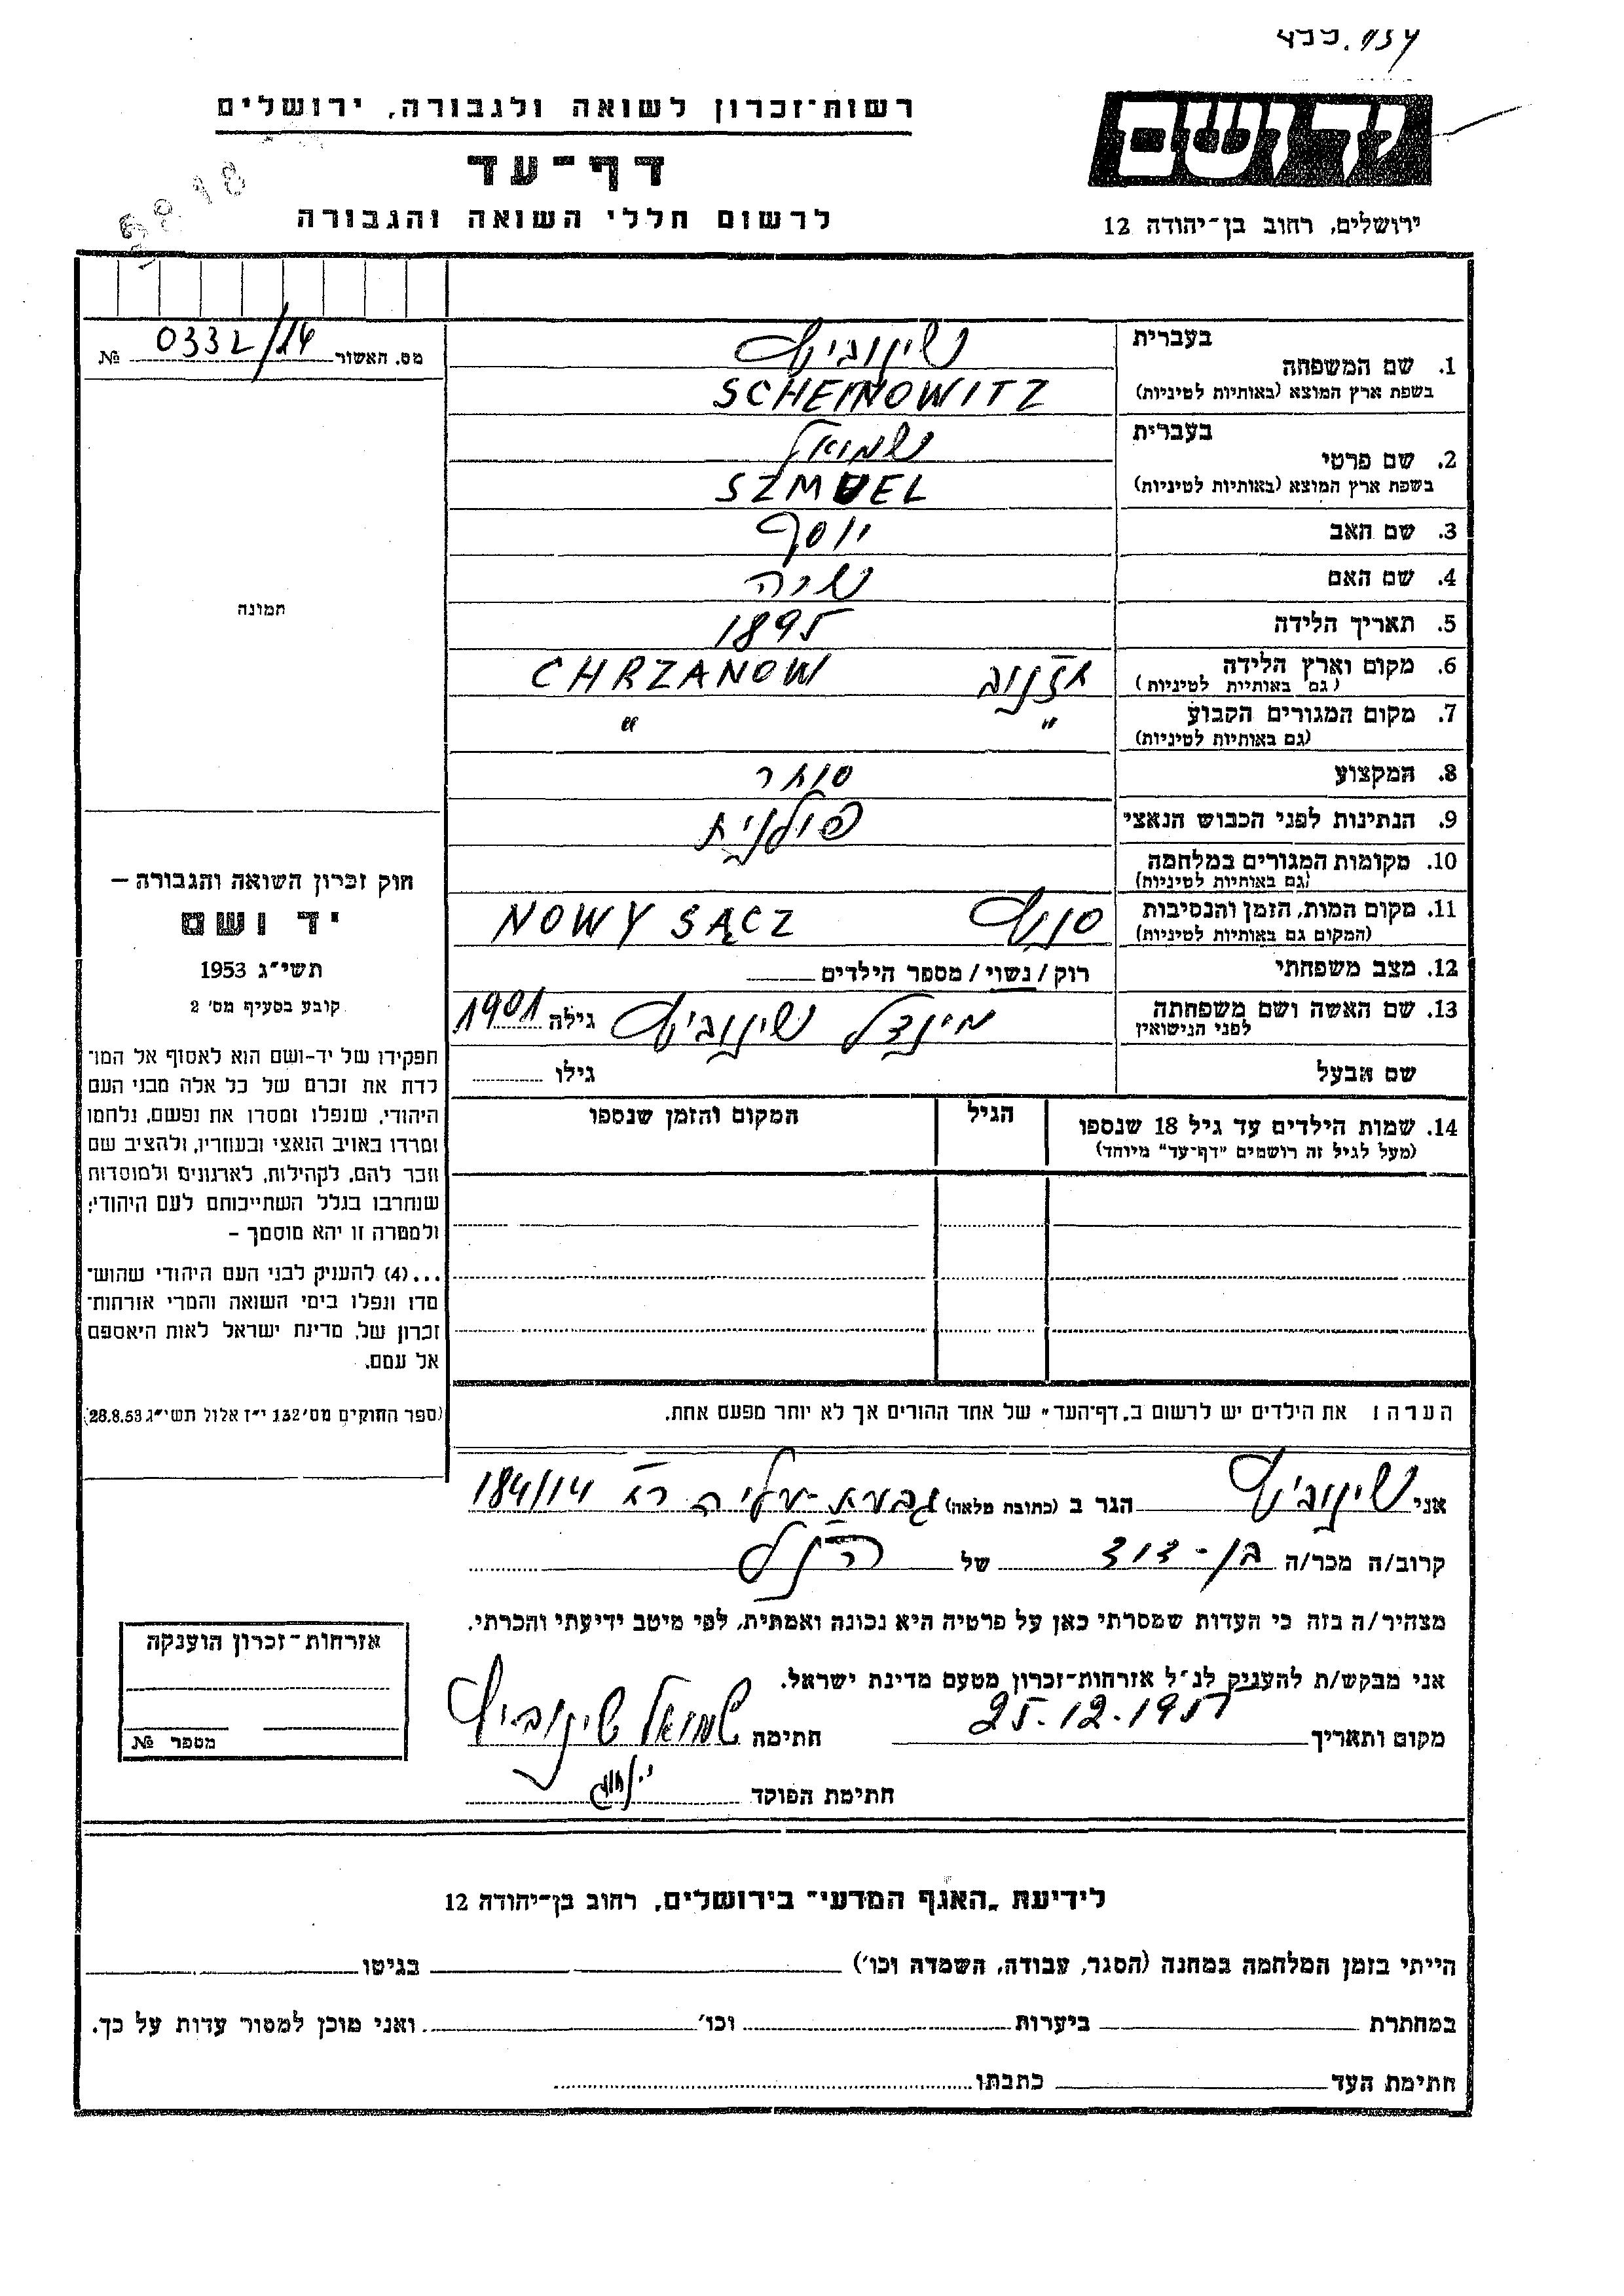 רשות־זכרון לשואה ולגבורה, ירושלים
יד ושם
דף־עד
לרשום חללי השואה והגבורה
ירושלים, רחוב בן־יהודה 12
5818
מס. האשור 0332/14 №
בעברית
1. שם המשפחה
שינוביץ
בשפת ארץ המוצא (באותיות לטיניות)
SCHEINOWITZ
בעברית
2. שם פרטי
שמואל
בשפת ארץ המוצא (באותיות לטיניות)
SZMUEL
3. שם האב יוסף
4. שם האם שרה
5. תאריך הלידה 1895
6. מקום וארץ הלידה
(גם באותיות לטיניות)
CHRZANOW
7. מקום המגורים הקבוע " "
(גם באותיות לטיניות)
8. המקצוע סוחר
9. הנתינות לפני הכבוש הנאצי פולנית
10. מקומות המגורים במלחמה
(גם באותיות לטיניות)
11. מקום המות, הזמן והנסיבות
(המקום גם באותיות לטיניות)
NOWY SĄCZ
12. מצב משפחתי רוק / נשוי / מספר הילדים
13. שם האשה ושם משפחתה
לפני הנישואין
מינדל שינוביץ גילה 1901
שם הבעל גילו
14. שמות הילדים עד גיל 18 שנספו הגיל המקום והזמן שנספו
(מעל לגיל זה רושמים "דף־עד" מיוחד)
הערה: את הילדים יש לרשום ב„דף־העד" של אחד ההורים אך לא יותר מפעם אחת.
תמונה
חוק זכרון השואה והגבורה —
יד ושם
תשי״ג 1953
קובע בסעיף מס׳ 2
תפקידו של יד־ושם הוא לאסוף אל המו־
לדת את זכרם של כל אלה מבני העם
היהודי, שנפלו ומסרו את נפשם, נלחמו
ומרדו באויב הנאצי ובעוזריו, ולהציב שם
וזכר להם, לקהילות, לארגונים ולמוסדות
שנחרבו בגלל השתייכותם לעם היהודי;
ולמטרה זו יהא מוסמך –
...(4) להעניק לבני העם היהודי שהוש־
מדו ונפלו בימי השואה והמרי אזרחות־
זכרון של, מדינת ישראל לאות היאספם
אל עמם.
(ספר החוקים מס׳ 132 י״ז אלול תשי״ג 28.8.53)
אני שינוביץ הגר ב (כתובת מלאה) גבעת עליה 184/14
קרוב/ה מכר/ה בן-דוד של הנ"ל
מצהיר/ה בזה כי העדות שמסרתי כאן על פרטיה היא נכונה ואמתית, לפי מיטב ידיעתי והכרתי.
אני מבקש/ת להעניק לנ״ל אזרחות־זכרון מטעם מדינת ישראל.
מקום ותאריך חתימה שמואל שינוביץ
חתימת הפוקד
אזרחות־זכרון הוענקה
מספר №
לידיעת „האגף המדעי" בירושלים, רחוב בן־יהודה 12
הייתי בזמן המלחמה במחנה (הסגר, עבודה, השמדה וכו׳) בגיטו
במחתרת ביערות וכו׳ ואני מוכן למסור עדות על כך.
חתימת העד כתבתו